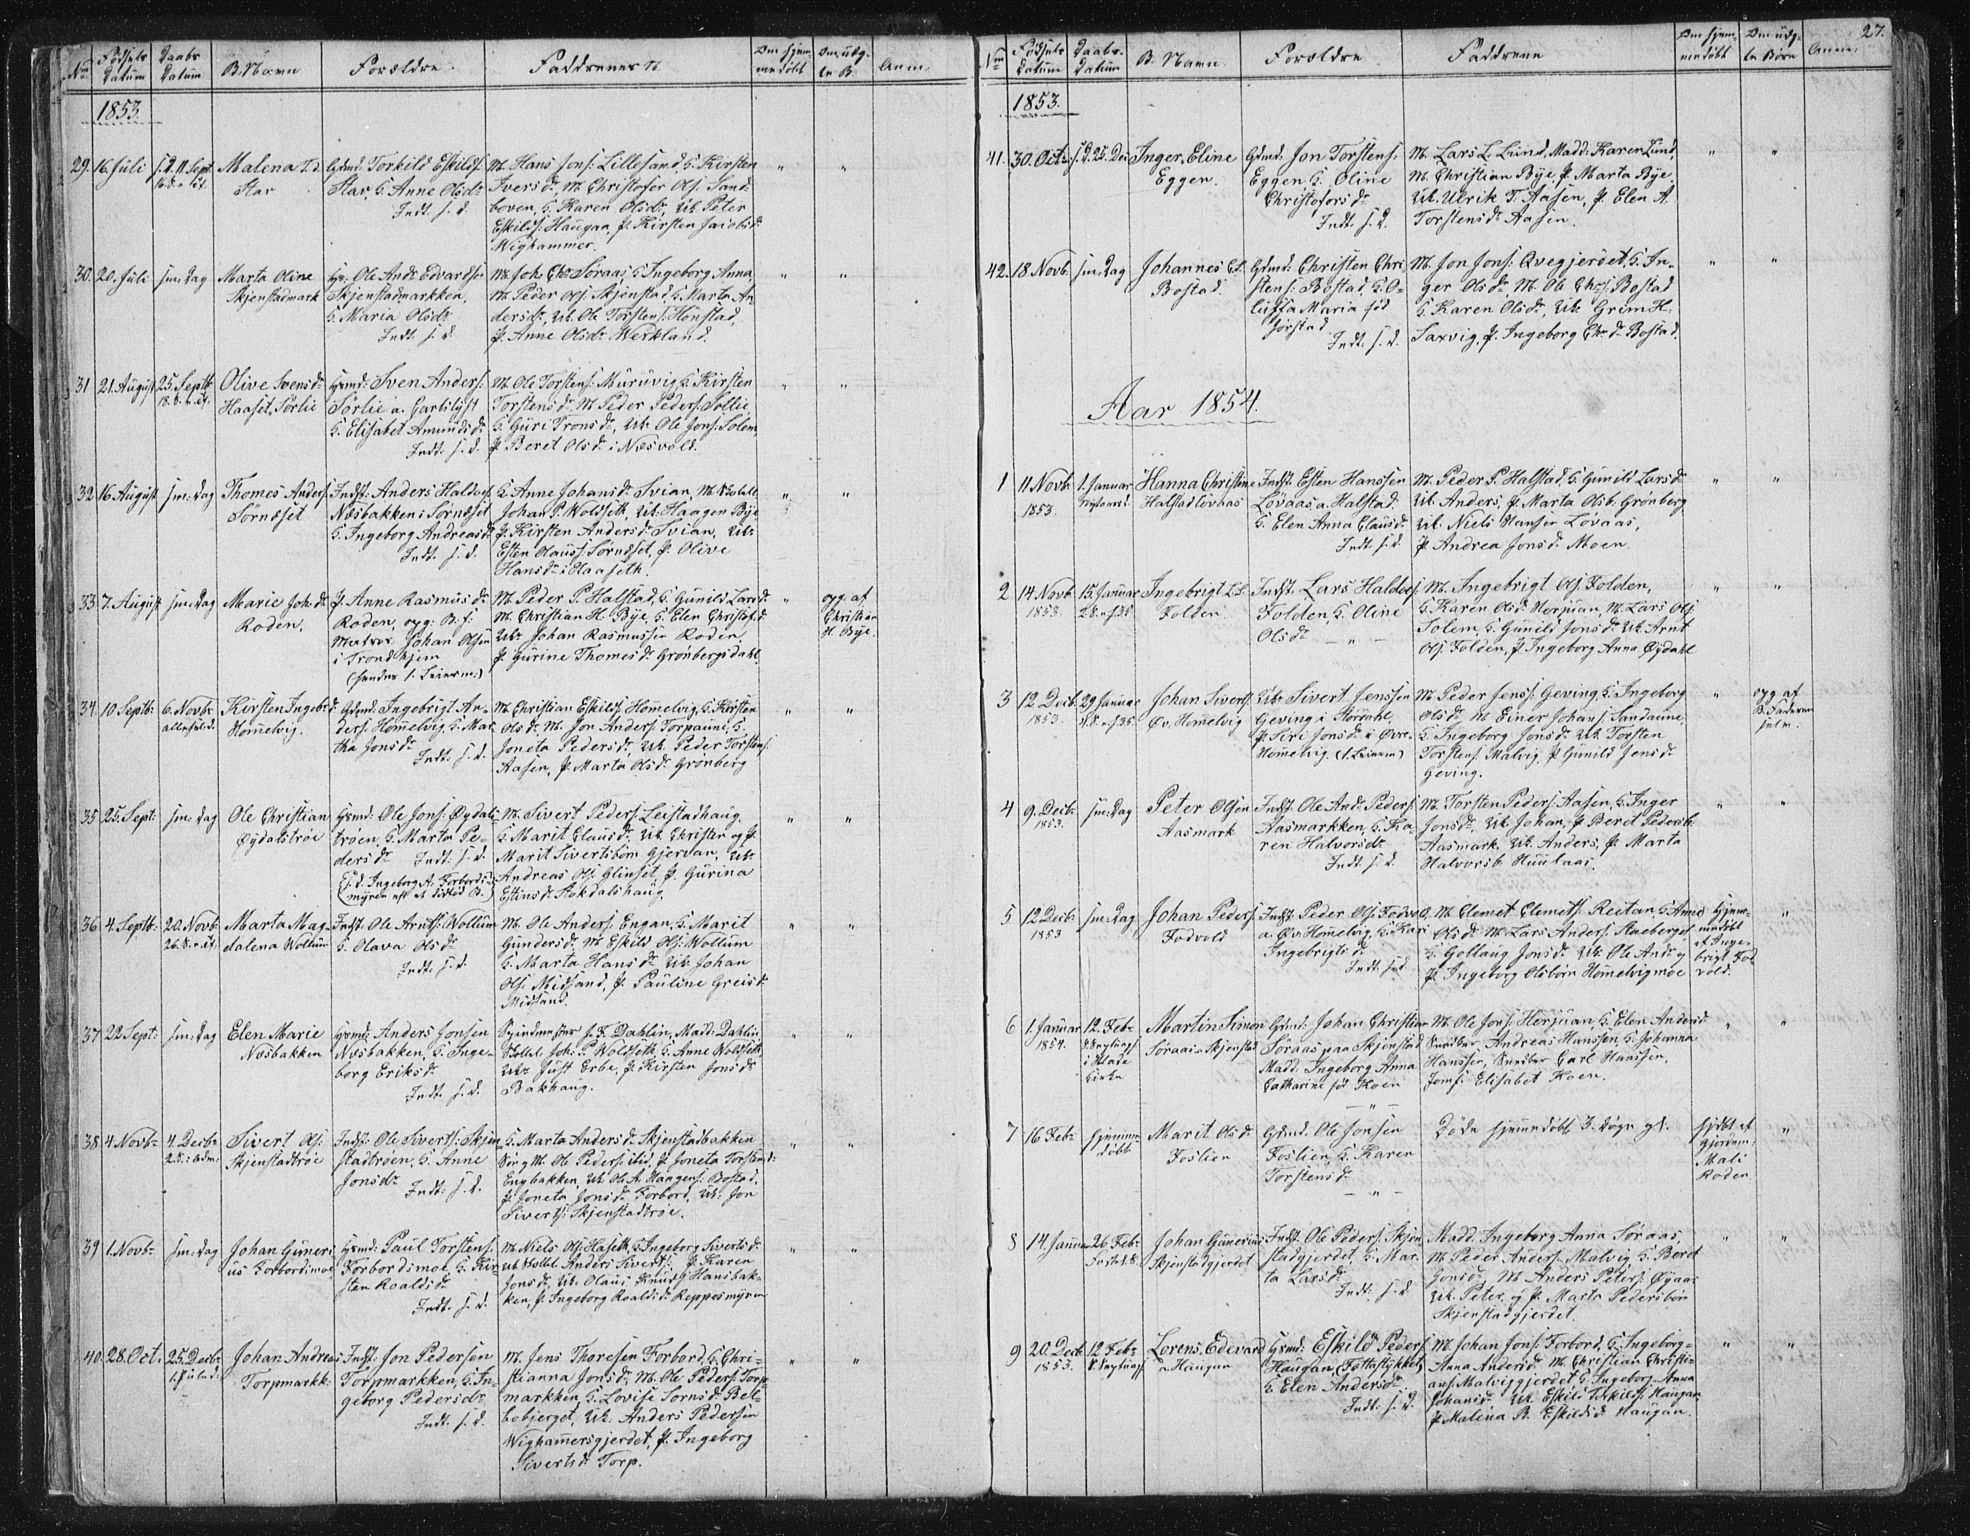 Nm Fødsels Datum Daabs Datum B. Navn Forældre Faddrenes N. Om hjemmedøbt Om uæg-te B. Anm.
1853.
29. 16. Juli 11. Sept. Malena T.d. Star Gdmd. Torkild Eskilds: Star, G. Anne Olsdr Indt. s. d.
M. Hans Jons: Lillesand, G. Kirsten
Iversdr, M. Christofer Ols: Sand-
boven, G. Karen Olsdr, Uk. Peter
Eskilds: Haugan, P. Kirsten Jacobsd.
Wighammer.
30. 20. Juli sm: Dag Marta Oline Skjenstadmark Ole Ands: Edvards: Skjenstadmarkken, G. Maria Olsdr Indt. s. d.
M. Joh: Chr. Søraas, G. Ingeborg Anna
M. Peder Ols: Skjenstad, G. Marta An-
dersdr, Uk. Ole Torstens: Honstad,
P. Anne Olsdr Werkland.
31 21. August 25. Septb: 18. S. e. Tr. Olive Svensdr Haaset, Sørlie Hsmd: Sven Anders: Sørlie a. Carlslyst G. Elisabet Amundsdr Indt. s. d.
M. Ole Torstens: Muruvig, G. Kirsten
Torstensdr, M. Peder Peders: Sollie,
G. Guri Tronsdr, Uk. Ole Jons: Solem,
P. Beret Olsdr i Næsvold.
32 16. August sm: Dag Thomes Anders: Sørnæset Indst: Anders Haldos: Næsbakken i Sørnæset G. Ingeborg Andreasdr Indt. s. d.
G. Anne Johansdr Svian, M.
Johan P. Woldseth, Uk. Haagen Bye
P. Kirsten Andersdr Svian, Uk.
Esten Olauss: Sørnæset, P. Olive
Hansdr i Haaseth.
33 7. August sm: Dag Marie Joh:dr Roden. P. Anne Rasmusdr Roden, Johan Olsen i Trondhjem (hendes 1. Leierm.)
M. Peder P. Halstad, G. Gunild Larsdr
M. Christian H. Bye, G. Elen Christofd.
Uk. Johan Rasmussen Roden,
P. Gurine Thomesdr Grønbergsdahl.
opg. af Christian H. Bye.
34. 10 Septb: 6. Novbr Kirsten Ingebr.d Hommelvig. Gdmd. Ingebrigt An-ders: Homelvig, G. Mar-tha Jonsdr Indt. s. d.
M. Christian Eskilds: Homelvig, G. Kirsten
Olsdr, M. Jon Anders: Torpaune, G.
Joneta Pedersdr, Uk. Peder Torstens:
Aasen, P. Marta Olsdr Grønberg
35 25. Sept: sm: Dag Ole Christian Øydalstrøe Hsmd: Ole Jons: Øydals-trøen, G. Marta Pe-dersdr Indt. s. d.
M. Sivert Peders: Leistadhaug,
G. Marit Clausdr, Uk. Christen og P.
Marit Sivertsbørn Gjervan, Uk.
Andreas Ols: Glinset, P. Gurina
Estensdr Stokdalshaug.
36 4. Septb: 20. Novb: 26. S. e. Tr. Marta Mag-dalena Wollum Indst. Ole Arnts: Wollum G. Olava Olsdr Indt. s. d.
M. Ole Anders: Engan, G. Marit
Gundersdr, M. Eskild Ols: Wollum
G. Marta Hansdr, Uk. Johan
Ols: Midsand, P. Pauline Greisdr
Midsand.
37 22 Sept: sm: Dag Elen Marie Næsbakken Hsmd: Anders Jonsen Næsbakken, G. Inge-borg Eriksdr Indt. s. d.
J. F. Dahlin, Madd: Dahlin,
Joh: P. Woldseth, G. Anne Woldseth,
Uk. Just Erbe, P. Kirsten Jonsdr
Bakhaug.
38 4. Novbr 4. Decbr 2. S. i Adv: Sivert Ols: Skjenstadtrøe Indst: Ole Siverts: Skjen-stadtrøen, G. Anne Jonsdr Indt. s. d.
G. Marta Andersdr Skjenstadbakken
M. Ole Peders: ibid, P. Joneta Torstensdr
Engbakken, Uk. Ole A. Haagens: Bostad,
P. Joneta Jonsdr Forbord, Uk. Jon
Siverts: Skjenstadtrøe.
39 1. Novbr sm: Dag Johan Guneri-us Forbordsmoe Hsmd: Paul Torstens: Forbordsmoe, G. Kir-sten Roaldsdr Indt. s. d.
M. Niels Ols: Haseth, G. Ingeborg Sivertsdr
Anders Siverts: P. Karen
Jonsdr, Uk. Olaus Knuts: Hansbak-
ken, P. Ingeborg Roaldsdr Reppesmyren
40. 28. Oct: 25. Decbr Johan Andreas Torpmarkk. Indst: Jon Pedersen Torpmarkken, G. In-geborg Pedersdr Indt. s. d.
M. Jens Thoresen Forbord, G. Chri-
stianna Jonsdr, M. Ole Peders: Torp-
markken, G. Lovise Sornsdr Bel-
bobjerget, Uk. Anders Pedersen
Wighammersgjerdet, P. Ingeborg
Sivertsdr Torp.
27.
Nm Fødsels Datum Daabs- Datum B. Navn. Forældre Faddrene Om hjem-medøbt Om uæg-te Børn Anm:
1853.
41. 30. Octbr 25. Dec Inger, Eline Eggen. Gdmd: Jon Torstens: Eggen G. Oline Christofersdr Indt. s. d.
M. Lars L. Lund, Madd: Karen Lund,
M. Christian Bye P. Marta Bye,
Uk. Ulrik T. Aasen, P. Elen A.
Torstensdr Aasen.
42. 18 Novb. sm: Dag Johannes C.S. Bostad. Gdmd: Christen Chri-stens: Bostad, G. O-luffa Maria fød Jørstad Indt. s. d.
M. Jon Jons: Qvegjerdet, G. In-
ger Olsdr, M. Ole Chrs: Bostad
G. Karen Olsdr, Uk. Grim H.
Saxvig, P. Ingeborg Chr.dr Bostad.
Aar 1854.
1 11. Novb 1853. 1. Januar Hanna Christine Halstad Løvaas Indst. Esten Hanssen Løvaas, a. Halstad. G. Elen Anna Clausdr Indt. s. d.
M. Peder P. Halstad, G. Gunild Larsdr
Uk. Anders, P. Marta Olsb. Grønberg
Uk. Niels Hansen Løvaas,
P. Andrea Jonsdr Moen.
2 14. Novb 1853. 15. Januar Ingebrigt L.S. Folden Indst. Lars Haldos: Folden, G. Oline Olsdr — " —
M. Ingebrigt Ols: Folden,
G. Karen Olsdr Herjuan, M. Lars Ols:
Solem, G. Gunild Jonsdr Uk. Arnt
Ols: Folden, P. Ingeborg Anna Øydahl
3 12 Decb. 1853. 29 Januar Johan Siverts: Øv. Homelvig Uk: Sivert Jenssen Geving i Størdahl, P. Siri Jonsdr i Øvre-Homelvig. (1. Leierm)
M. Peder Jens: Geving, G. Ingeborg
Olsdr, M. Einer Johans: Sandaune,
G. Ingeborg Jonsdr Uk. Torsten
Torstens: Malvig, P. Gunild Jensdr
Geving.
opg. af B. Faderen selv.
4 9. Decb: 1853. sm: Dag Peter Olsen Aasmark Indst. Ole And: Peders: Aasmarkken, G. Ka-ren Halvorsdr Indt. s. d.
M. Torsten Peders: Aasen, G. Inger
Jonsdr, Uk. Johan, P. Beret Pedersb:
Aasmark, Uk. Anders, P. Marta
Halvorsb. Huulaas.
5 12 Decb: 1853 sm: Dag Johan Peders: Fodvold Indst. Peder Ols: Fodvold a. Øv. Homelvig, G. Kari Ingebrigtsdr Indt. s. d.
M. Clemet Clemets: Reitan, G. Anne
Olsdr M. Lars Anders: Stueberget
G. Gollaug Jonsdr Uk. Ole Ands: og
P. Ingeborg Olsbørn Homelvigmoe
Hjem-medøbt af Inge-brigt Fod-vold.
6 1. Januar 1854. 12. Febr i Lade Kirke Martin Simon Søraas, Skjenstad Gdmd: Johan Christian Søraas paa Skjenstad Madd. Ingeborg Anna Catharine fød Koen — " —
M. Ole Jons: Herjuan, G. Elen Andersd.
Andreas Hanssen, G. Johanna
Hanssen, Carl Hanssen,
Jomf. Elisabet Koen.
7 16 Febr Hjemme-døbt Marit Olsdr Foslien Gdmd: Ole Jonsen Foslien, G. Karen Torstensdr — " —
Døde hjemmedøbt 3 Døgn gl.
Hjdbt af Gjordem: Mali Roden
8 14. Januar 26. Febr Johan Gunerius Skjenstadgjerdet Indst. Ole Peders: Skjen-stadgjerdet, G. Mar-ta Larsdr Indt. s. d.
Madd. Ingeborg Anna Søraas,
M. Peder Anders: Malvig, G. Beret
Jonsdr, M. Anders Peters: Øyaas
Uk. Peter, og P. Marta Pedersbørn
Skjenstadgjerdet.
9 20. Decb 1853. 12 Febr Lorens, Edevard a. Haugan Hsmd: Eskild Peders: Haugan, G. Elen Andersdr Indt. s. d.
M. Johan Jons: Forbord, G. Ingeborg-
Anna Andersdr M. Christian Christi-
ans: Malviggjerdet G. Ingeborg Anna
Johansdr Uk. Eskild Torkilds: Haugan
P. Malena B. Eskildsd Haugan.